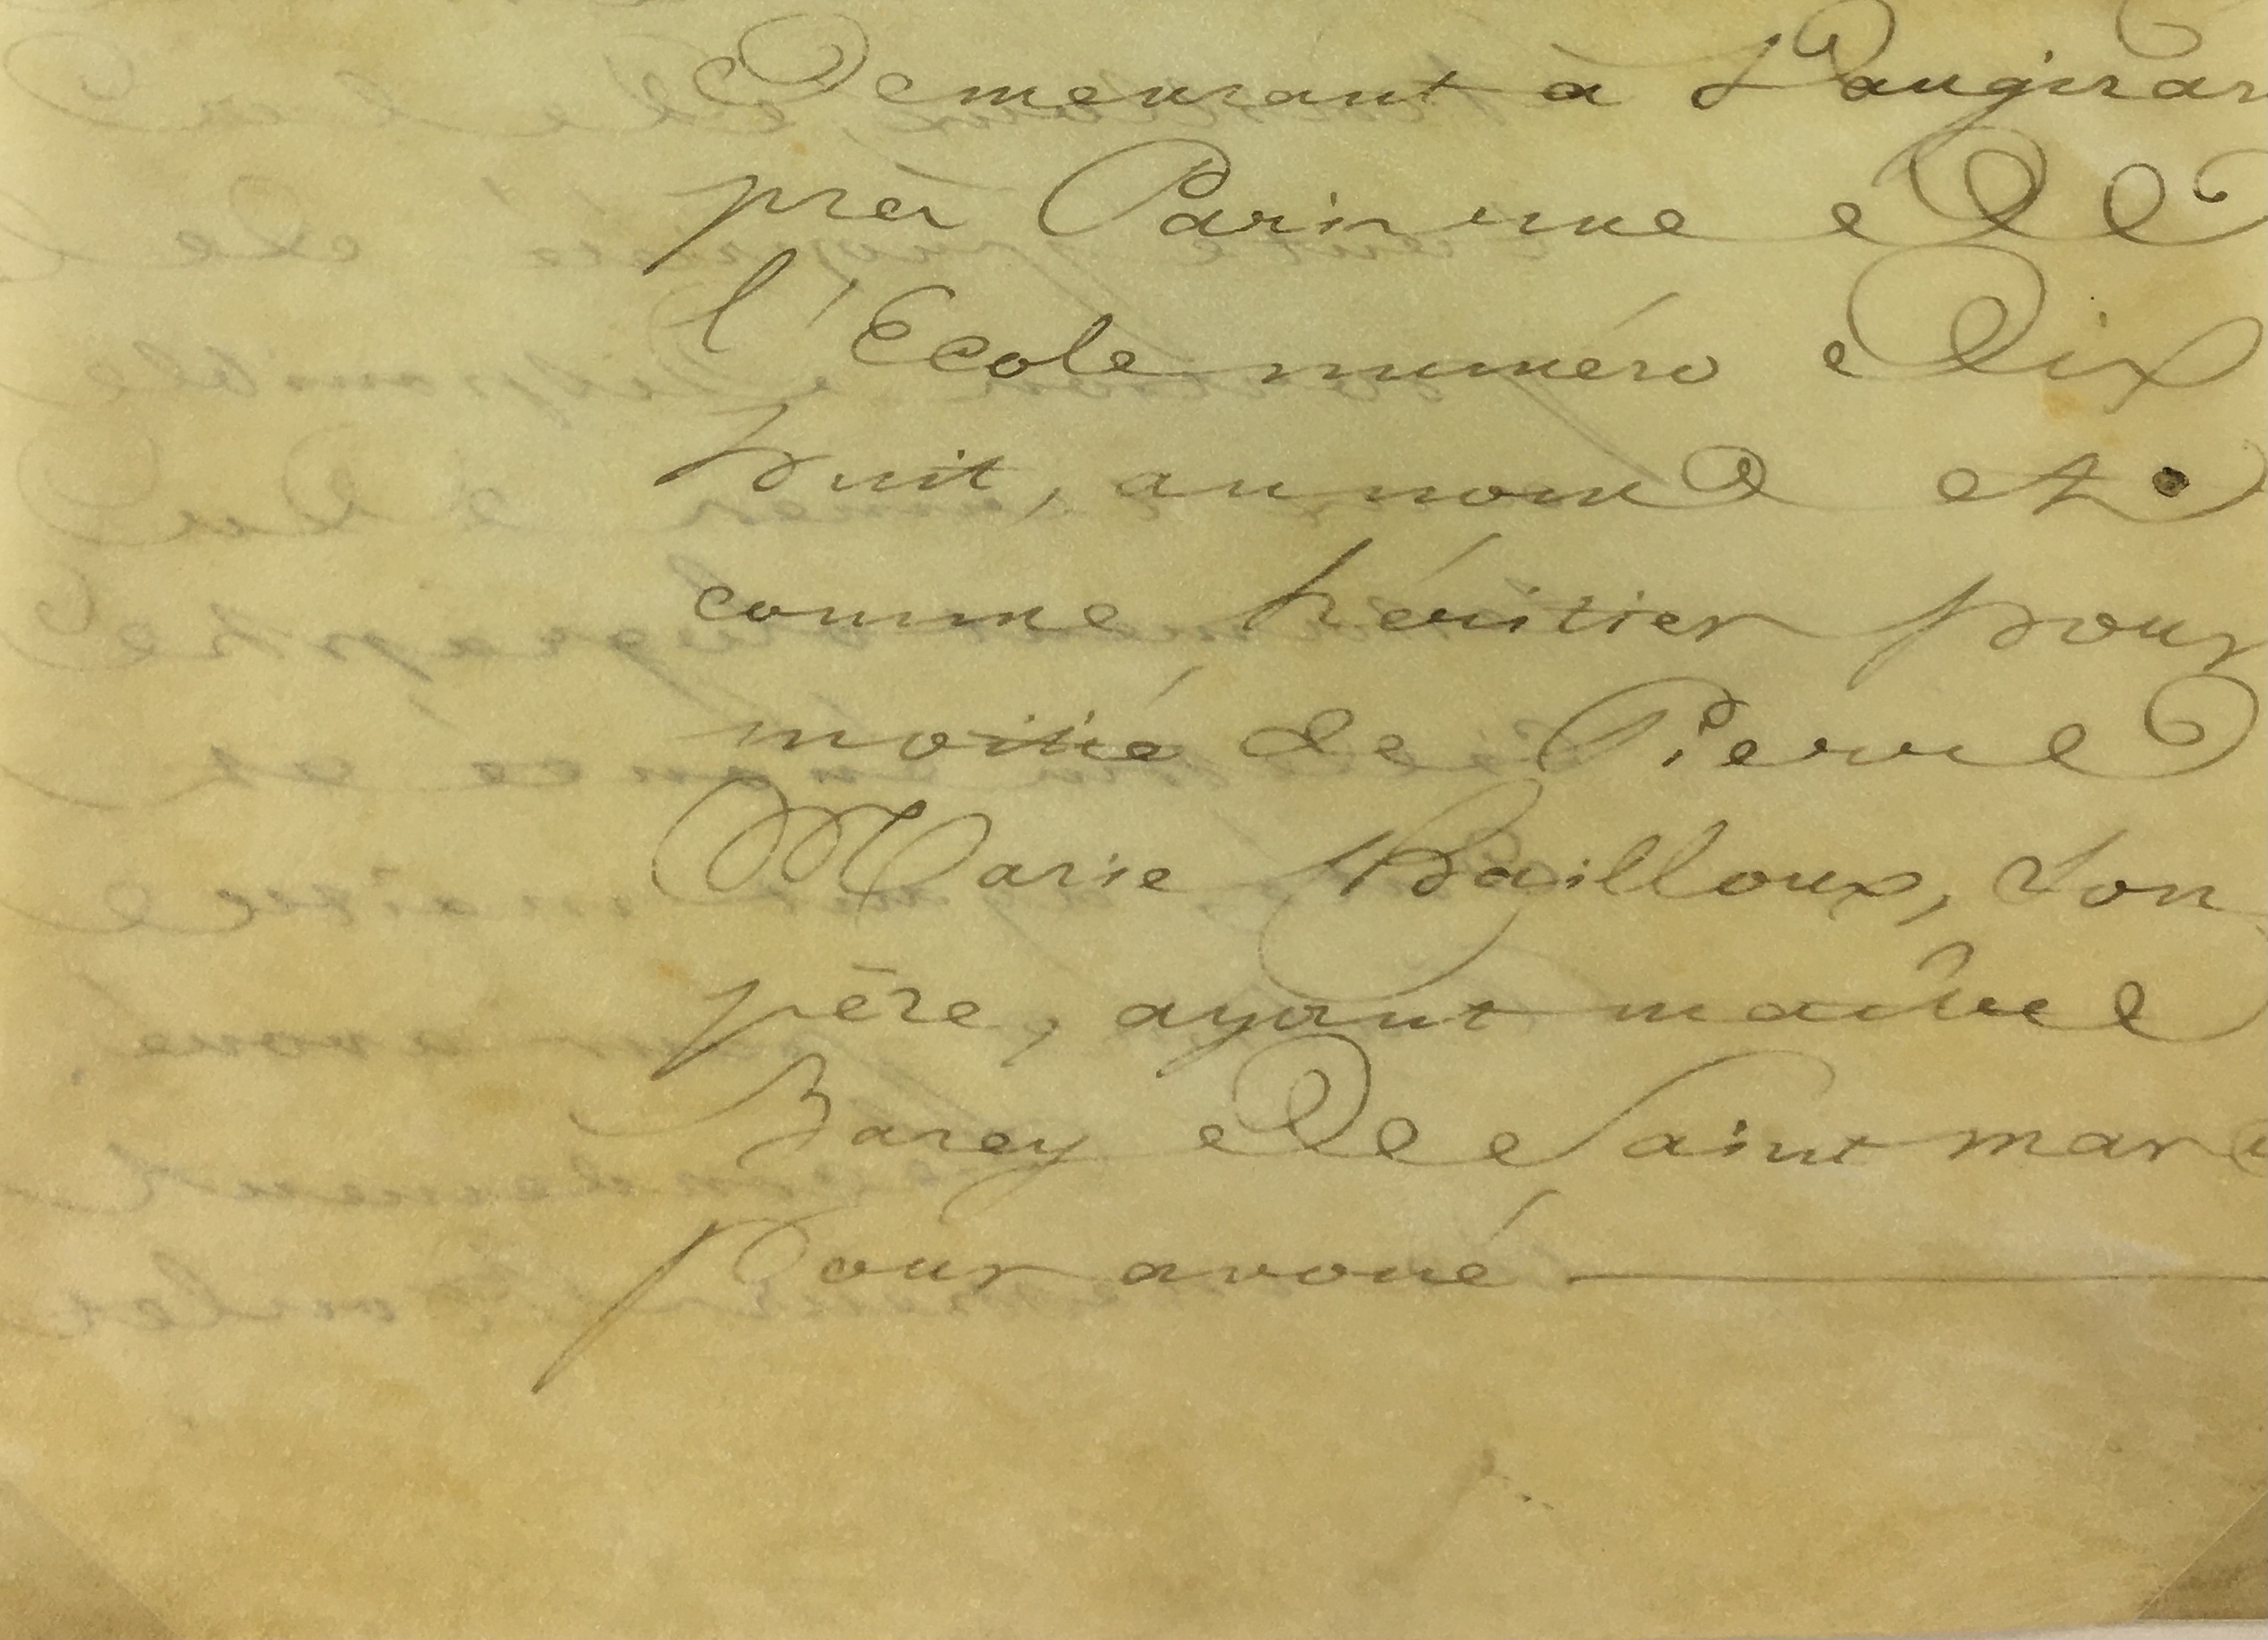 Demeurant à Vaugirar
près Paris rue de
l'Ecole numéro dix
huit, au nom et
comme héritier pour
moitié de Pierre
Marie Bailloux, son
père, ayant maître
Barey de Saint mar
pour avoué